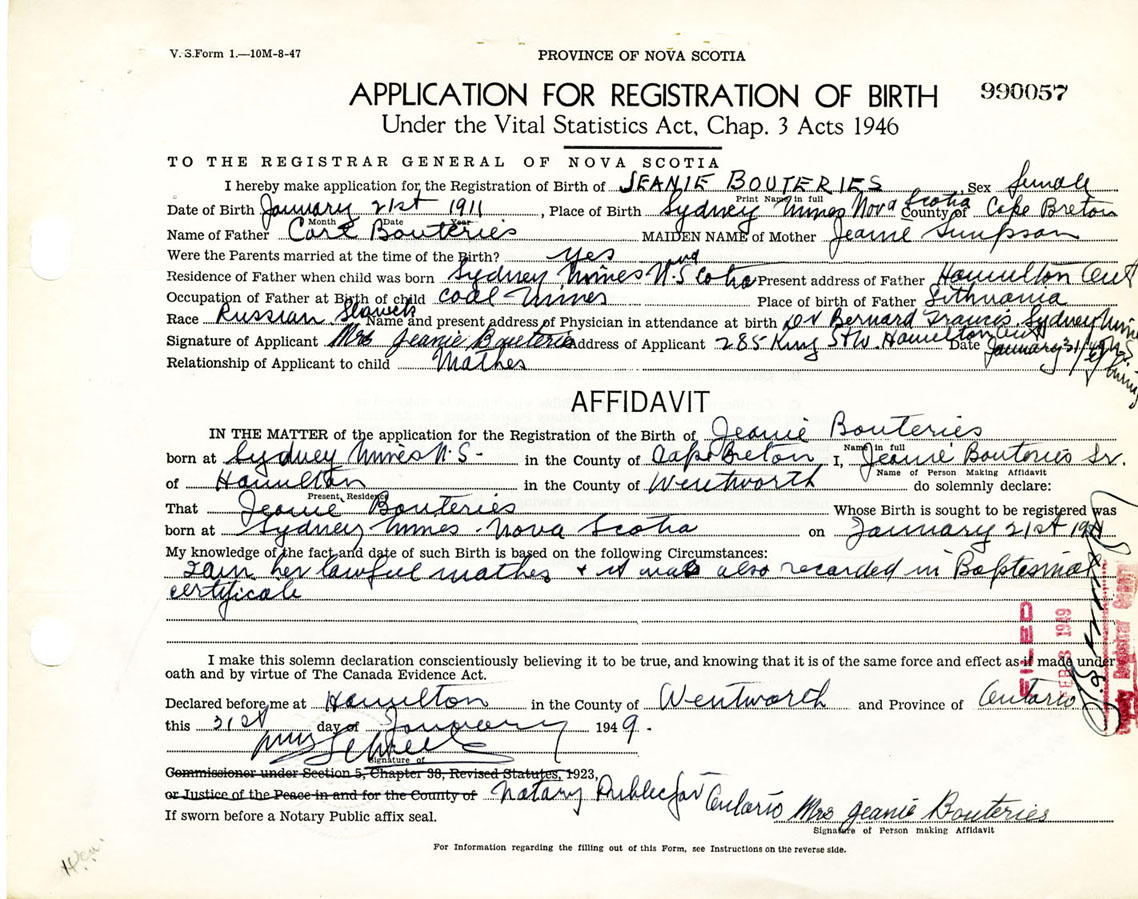 V. S. Form 1.—10M-8-47
PROVINCE OF NOVA SCOTIA
APPLICATION FOR REGISTRATION OF BIRTH 990057
Under the Vital Statistics Act, Chap. 3 Acts 1946
TO THE REGISTRAR GENERAL OF NOVA SCOTIA
I hereby make application for the Registration of Birth of JEANIE BOUTERIES, Sex Female
Print Name in full
Date of Birth January 21st 1911, Place of Birth Sydney Mines Nova Scotia County of Cape Breton
Month Date Year
Name of Father Carl Bouteries MAIDEN NAME of Mother Jeanie Simpson
Were the Parents married at the time of the Birth? yes
Residence of Father when child was born Sydney Mines N. Scotia Present address of Father Hamilton Ont
Occupation of Father at Birth of child coal miner Place of birth of Father Lithuania
Race Russian Name and present address of Physician in attendance at birth Dr Bernard Francis. Sydney Mines
Signature of Applicant Mrs Jeanie Bouteries Address of Applicant 285 King St W. Hamilton Ont Date January 31/49
Relationship of Applicant to child Mother
AFFIDAVIT
IN THE MATTER of the application for the Registration of the Birth of Jeanie Bouteries
Name in full
born at Sydney Mines N.S- in the County of Cape Breton I, Jeanie Bouteries Sr.
Name of Person Making Affidavit
of Hamilton in the County of Wentworth do solemnly declare:
Present Residence
That Jeanie Bouteries Whose Birth is sought to be registered was
born at Sydney Mines. Nova Scotia on January 21st 1911
My knowledge of the fact and date of such Birth is based on the following Circumstances:
I am her lawful mother + it was also recorded in Baptesimal
certificate
FILED
FEB 3 1949
I make this solemn declaration conscientiously believing it to be true, and knowing that it is of the same force and effect as if made under
oath and by virtue of The Canada Evidence Act.
Declared before me at Hamilton in the County of Wentworth and Province of Ontario
this 31st day of January 1949.
Signature of
Commissioner under Section 5, Chapter 38, Revised Statutes, 1923,
or Justice of the Peace in and for the County of Notary Public for Ontario Mrs Jeanie Bouteries
If sworn before a Notary Public affix seal.
Signature of Person making Affidavit
For Information regarding the filling out of this Form, see Instructions on the reverse side.